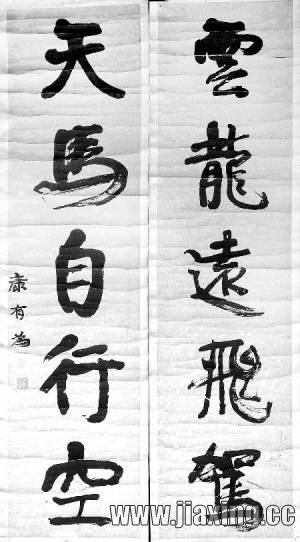 雲龍遠飛駕
天馬自行空
康有為
www.jiaxing.cc